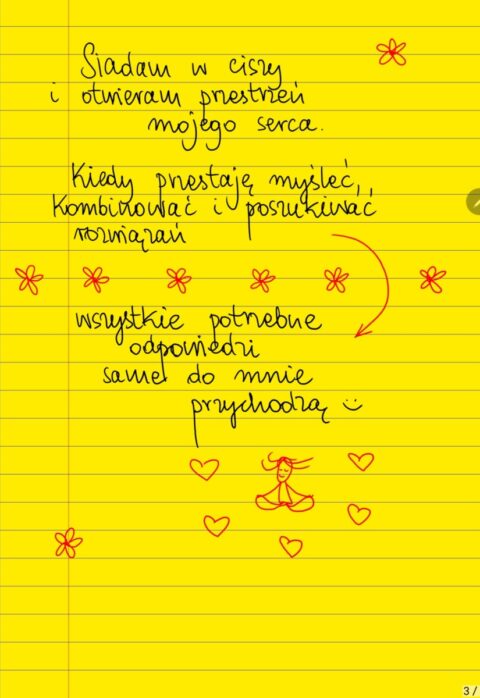 Siadam w ciszy
i otwieram przestrzeń
mojego serca.
Kiedy przestaję myśleć,
kombinować i poszukiwać
rozwiązań
wszystkie potrzebne
odpowiedzi
same do mnie
przychodzą :)
3/